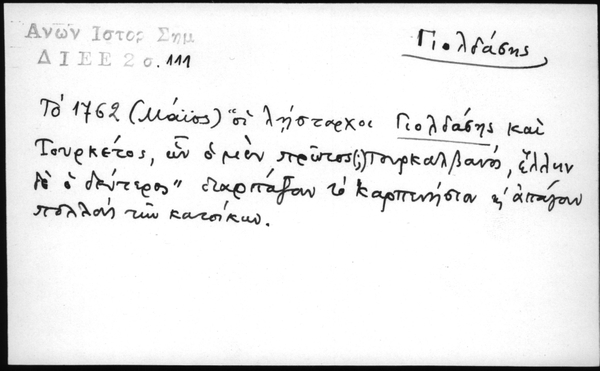 Ανων Ιστορ Σημ
Δ Ι Ε Ε 2 σ. 111
Γιολδάσης
Τὸ 1762 (Μάϊος) "οἱ λῄσταρχοι Γιολδάσης καὶ
Τουρκέτος, ὧν ὁ μὲν πρῶτος (;) Τουρκαλβανός, ἕλλην
δὲ ὁ δεύτερος" διαρπάζουν τὸ Καρπενήσιον κ' ἀπάγουν
πολλοὺς τῶν κατοίκων.